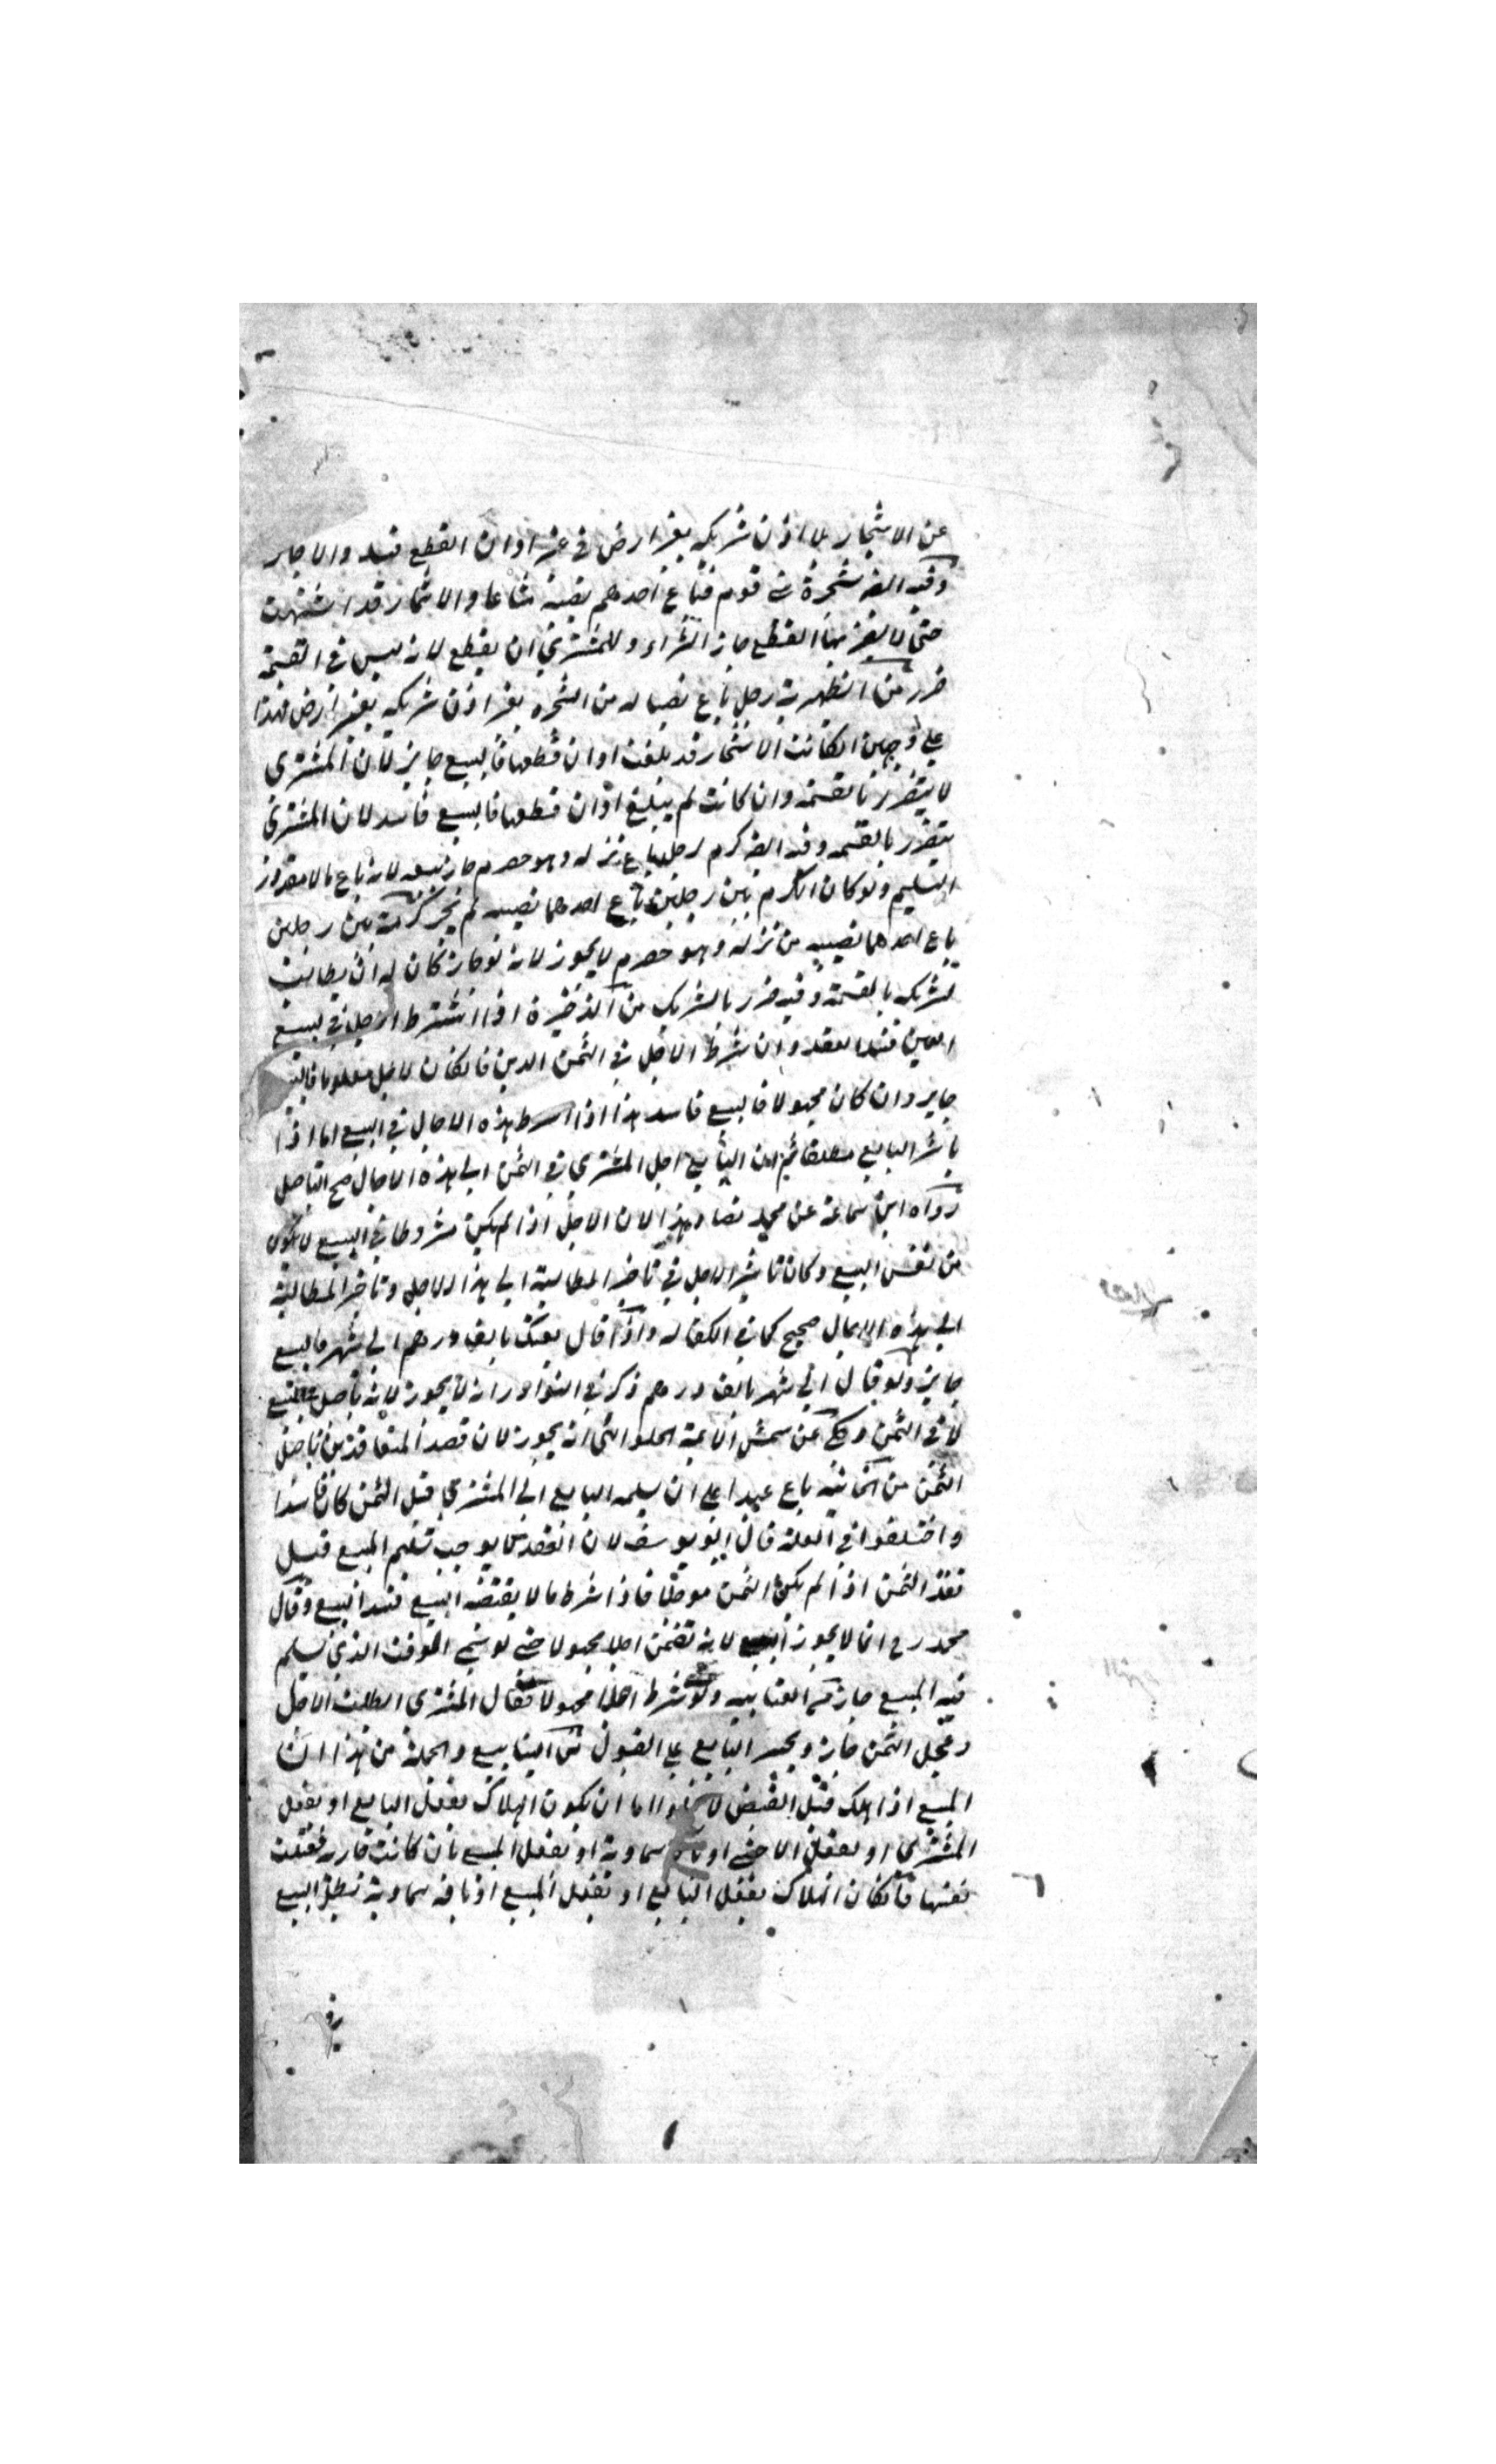 عن الاشجار بلا اذن شريكه بغير ارض في غير اوان القطع فسد والا جاز
وفيه ايضا شجرة بين قوم فباع احدهم نصيبه مشاعا والاشجار قد انتهت
حتى لا يضر بها القطع جاز الشراء وللمشتري ان يقطع لانه ليس في القسمة
ضرر من الظهيرية رجل باع نصيبا له من الشجرة بغير اذن شريكه بغير ارض فهذا
على وجهين ان كانت الاشجار قد بلغت اوان قطعها فالبيع جايز لان المشترى
لا يتضرر بالقسمة وان كانت لم يبلغ اوان قطعها فالبيع فاسد لان المشتري
يتضرر بالقسمه وفيه ايضا كرم لرجل باع نزله وهو حصرم جاز بيعه لانه باع مالا مقدور
التسليم ولو كان الكرم بين رجلين باع احدهما نصيبه لم يجز كرم بين رجلين
باع احدهما نصيبه من نزله وهو حصرم لا يجوز لانه لو جاز كان له ان يطالب
شريكه بالقسمة وفيه ضرر بالشريك من الذخيرة اذا اشترط الاجل في المبيع
العين فسد العقد وان شرط الاجل في الثمن الدين فان كان الاجل معلوما فالبيع
جايز وان كان مجهولا فالبيع فاسد هذا اذا شرط هذه الاجال في البيع اما اذا
باشر البايع مطلقا ثم ان البايع اجل المشتري في الثمن الى هذه الاجال صح التاجيل
رواه ابن سماعة عن محمد نصا وهذا لان الاجل اذا لم يكن مشروطا في البيع لا يكون
من نفس البيع وكان تاثير الاجل في تاخير المطالبة الى هذا الاجل وتاخير المطالبة
الى هذه الاجال صحيح كما في الكفاله واذا قال بعتك بالف درهم الى شهر فالبيع
جايز ولو قال الى شهر بالف درهم ذكر في النوادر انه لا يجوز لانه تاجيل المبيع
لا في الثمن وحكي عن شمس الائمة الحلواني انه يجوز لان قصد المتعاقدين تاجيل
الثمن من الخانية باع عبدا على ان يسلمه البايع الى المشتري قبل الثمن كان فاسدا
واختلفوا في العلة قال ابو يوسف لان العقد لا يوجب تسليم المبيع قبل
نقد الثمن اذا لم يكن الثمن موجلا فاذا شرط ما لا يقتضيه البيع فسد البيع وقال
محمد رح انما لا يجوز البيع لانه تضمن اجلا مجهولا حتى لو سمى الوقت الذي يسلم
فيه المبيع جاز من العتابيه ولو شرط اجلا مجهولا فقال المشترى ابطلت الاجل
وعجل الثمن جاز ويجبر البايع على القبول من الينابيع والجملة من هذا ان
المبيع اذا هلك قبل القبض لا يخلو اما ان يكون الهلاك بفعل البايع او بفعل
المشترى او بفعل الاجنبي او بافة سماوية او بفعل المبيع بان كانت جارية فقتلت
نفسها فان كان الهلاك بفعل البايع او بفعل المبيع او بافه سماوية بطل البيع